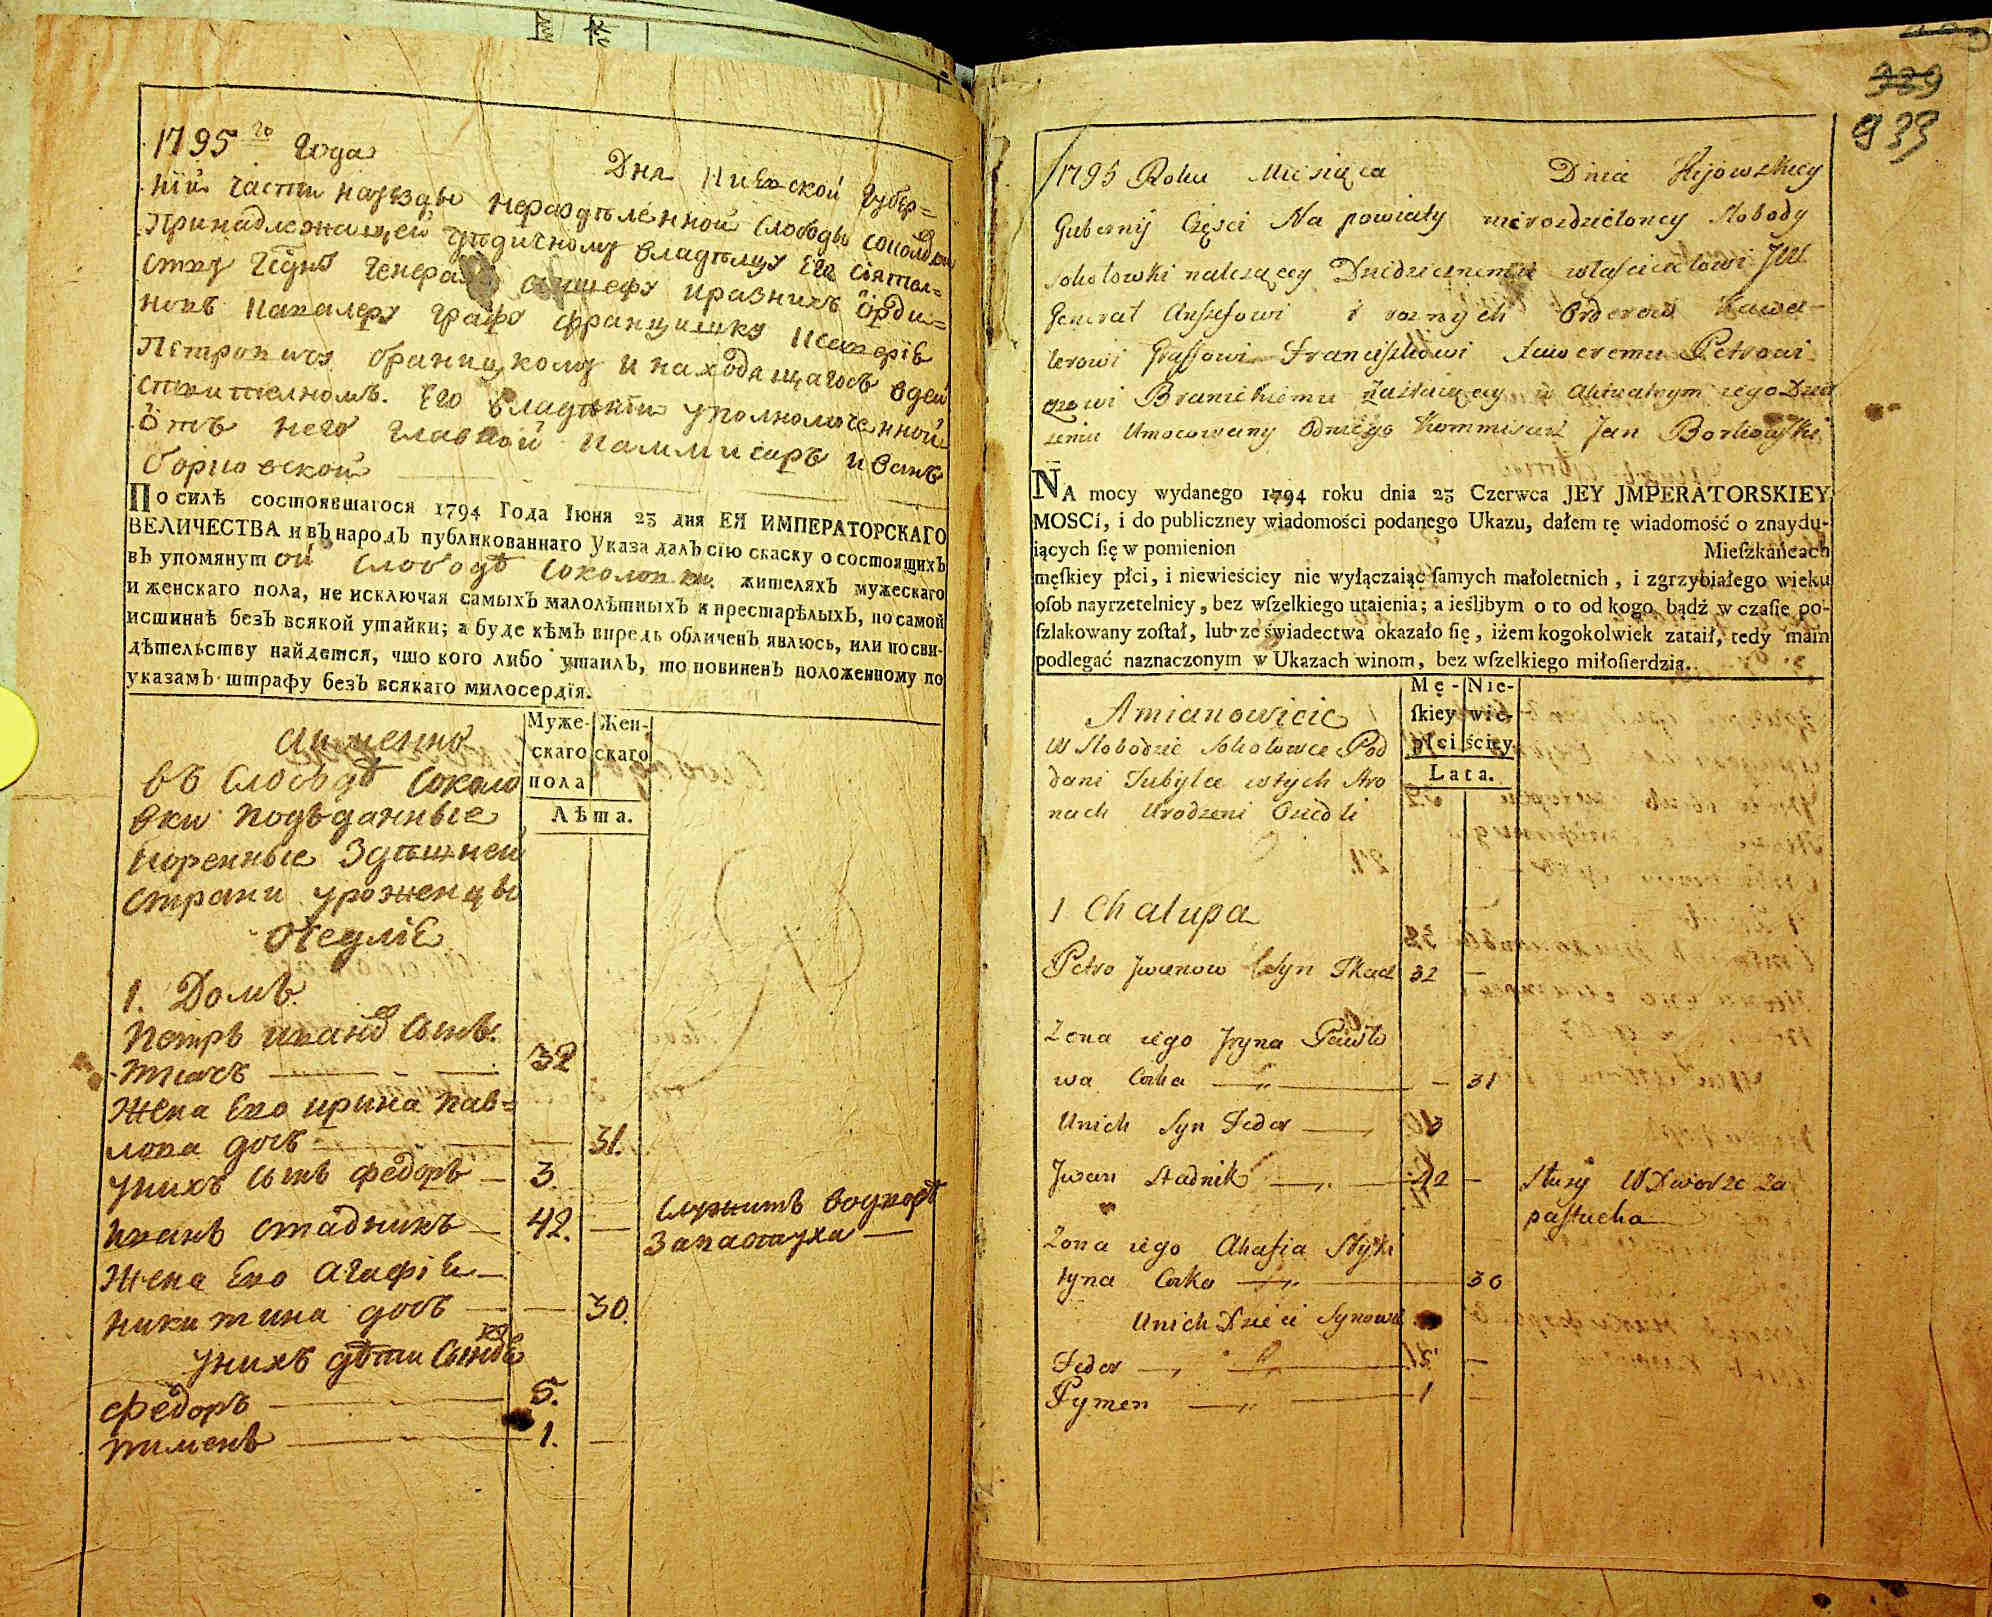 1795 го года Дня Киевской Губер=
нїи части науезды нераздѣленной слободы соколовки
принадлежащей дѣдичному владѣлцу Его Сїятел=
ству Гсдну Генералъ аншефу иразнихъ Орди=
новъ Кавалеру графу францишку Ксаверїю
Петровичу браницкому и находящагось вдей
ствителномъ. Его владѣнїи уполномоченной
Отъ него главной каммисаръ иванъ
борковской
По силѣ состоявшагося 1794 Года Іюня 23 дня ЕЯ ИМПЕРАТОРСКАГО
ВЕЛИЧЕСТВА и въ народъ публикованнаго Указа далъ сїю скаску о состоящихъ
въ упомянутой Слободѣ Соколовки жителяхъ мужескаго
и женскаго пола, не исключая самыхъ малолѣтныхъ и престарѣлыхъ, по самой
истиннѣ безъ всякой утайки; а буде кѣмъ впредь обличенъ явлюсь, или по сви-
дѣтельству найдется, что кого либо утаилъ, то повиненъ положенному по
указамъ штрафу безъ всякаго милосердїя.
Муже- Жен-
скаго скаго
пола
Лѣта.
аименно
въ Слободѣ Соколо
вки подъданные
коренные Здѣшней
страни уроженцы
Оседлїе
1. Домъ
Петръ ивановъ Сынъ
Ткачъ 32
Жена Его ирина пав=
лова дочъ 31.
унихъ сынъ федоръ 3.
иванъ стадникъ 42. Служитъ водворѣ
Запастуха
Жена Его Агафїя
никитина дочъ 30.
унихъ дѣти Сыновя
федоръ 5.
пименъ 1.
939
933
1795 Roku Miesiąca Dnia Kijowskiey
Gubernij Części Na powiaty nierozdzieloney Slobody
Sokołowki nalezącey Dziedzicznemu właścicielowi JW
Generał Anszefowi i roznych Orderow Kawa-
lerowi Graffowi Franciszkowi Xaweremu Petrowi
czowi Branickiemu Zostaiącey w Aktualnym iego Dzier
zeniu Umocowany Odniego Kommisarz Jan Borkowski
NA mocy wydanego 1794 roku dnia 23 Czerwca JEY JMPERATORSKIEY
MOSCi, i do publiczney wiadomości podanego Ukazu, dałem tę wiadomość o znaydu-
iących ſię w pomienion Mieſzkańcach
męſkiey płci, i niewieściey nie wyłączaiąc ſamych małoletnich, i zgrzybiałego wieku
oſob nayrzetelniey, bez wſzelkiego utaienia; a ieślibym o to od kogo bądź w czaſie po-
ſzlakowany zoſtał, lub ze świadectwa okazało ſię, iżem kogokolwiek zataił, tedy mam
podlegać naznaczonym w Ukazach winom, bez wſzelkiego miłoſierdzia.
Mę- Nie-
ſkiey wie-
płci ściey
Lata.
Amianowicie
W Slobodzie Sokołowce Pod
dani Tubylce wtych Stro
nach Urodzeni Osiedli
1 Chalupa
Petro Jwanow Syn Tkacz 32 —
Zona iego Jryna Pawło
wa Corka — 31
Unich Syn Fedor 3
Jwan Stadnik 42 — Służy W Dworze za
pastucha
Zona iego Ahafia Niki
tyna Corka 30
Unich Dzieci Synowie
Fedor 5 —
Pymen 1